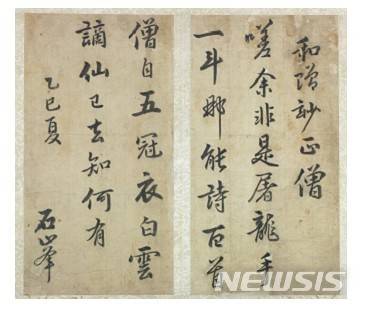 和贈玅正僧
嗟余非是屠龍手
一斗那能詩百首
僧自五冠衣白雲
謫仙已去知何有
乙巳夏
石峯
NEWSIS